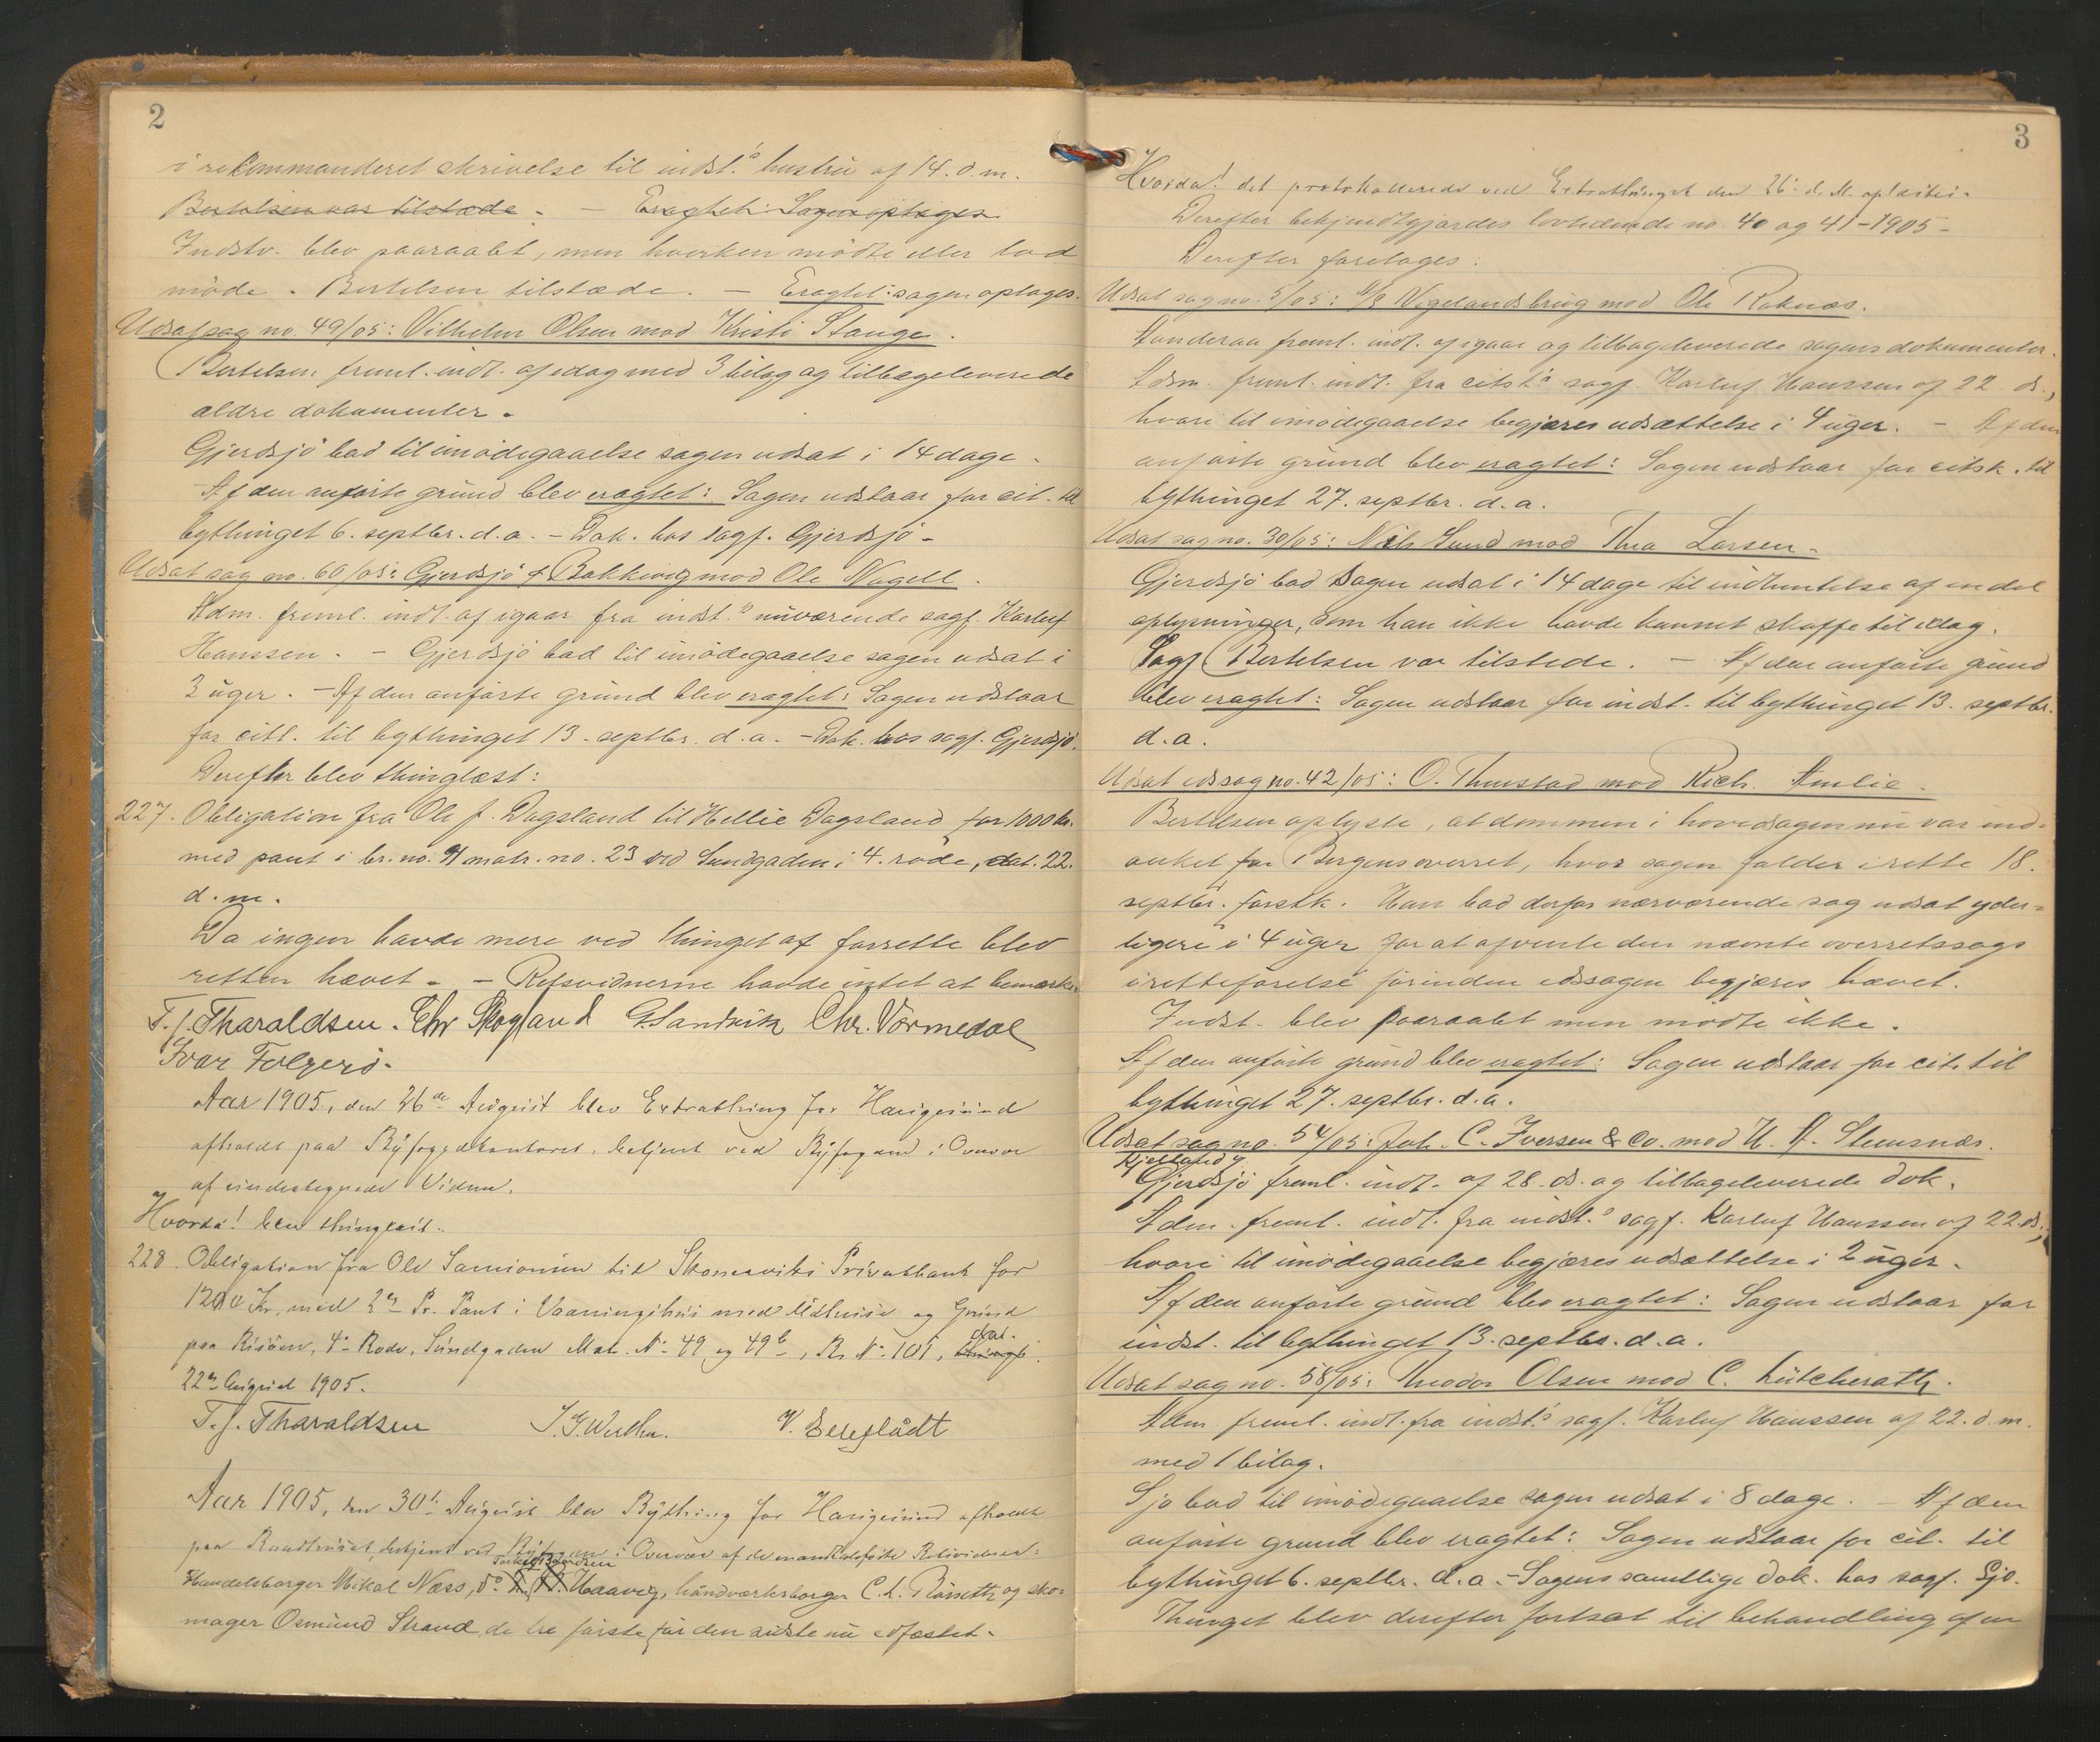 2
i rekommanderet skrivelse til indst.s hustru af 14. d. m.
Bertelsen var tilstæde. — Eragtet: Sagen optages.
Indstv. blev paaraabt, men hverken mödte eller lod
möde. Bertelsen tilstæde. — Eragtet: sagen optages.
Udsat sag no. 49/05: Vilhelm Olsen mod Kristi Stange.
Bertelsen freml. indl. af idag med 3 bilag og tilbageleverede
ældre dokumenter.
Gjerdsjö bad til imödegaaelse sagen udsat i 14 dage.
Af den anförte grund blev eragtet: Sagen udstaar for cit. til
bythinget 6. septbr. d. a. — Dok. hos sagf. Gjerdsjö.
Udsat sag no. 60/05: Gjerdsjö & Bakkevig mod Ole Nagell.
Adm. freml. indl. af igaar fra indst.s nuværende sagf. Karluf
Hanssen. — Gjerdsjö bad til imödegaaelse sagen udsat i
3 uger. — Af den anförte grund blev eragtet: Sagen udstaar
for citt. til bythinget 13. septbr. d. a. — Dok. hos sagf. Gjerdsjö.
Derefter blev thinglæst:
227. Obligation fra Ole J. Dagsland til Hellie Dagsland for 1000 kr.
med pant i br. no. 91 matr. no. 23 ved Sundgaden i 4. rode, dat. 22.
d. m.
Da ingen havde mere ved thinget at forrette blev
retten hævet. — Retsvidnerne havde intet at bemærke.
T. J. Tharaldsen. Chr Skogland G Sandvik Chr. Vormedal
Ivar Folgerö.
Aar 1905, den 26de August blev Extrathing for Haugesund
afholdt paa Byfogedkontoret, betjent ved Byfogden i Overvær
af undertegnede Vidner.
Hvorda! blev thinglæst:
228. Obligation fra Ole til Skonevik Privatbank for
1200 Kr. med 2en Pr. Pant i Vaaningshus med Udhuse og Grund
paa Risöen, 4de Rode, Sundgaden Mat. No 49 og 49b, Br. No 101, dat.
22de August 1905.
T. J. Tharaldsen J. G. V.
Aar 1905, den 30te August blev Bything for Haugesund afholdt
paa Raadhuset, betjent ved Byfogden i Overvær af de Retsvidner:
Handelsborger Mikal Næss, do Haavig, håndværksborger C. L. og sko-
mager Osmund Strand, de tre förste för den sidste nu edfæstet.
3
Hvorda! det protokollerede ved Extrathinget den 26de d. M. oplæstes.
Derefter bekjendtgjordes lovtidende no. 40 og 41 - 1905 -
Derefter foretoges:
Udsat sag no. 5/05: A/S Vigelandsbrug mod Ole Raknæs.
freml. indl. af igaar og tilbageleverede sagens dokumenter.
Adm. freml. indl. fra citst.s sagf. Karluf Hanssen af 22 ds.,
hvori til imödegaaelse begjæres udsættelse i 4 uger. — Af den
anförte grund blev eragtet: Sagen udstaar for citsk. til
bythinget 27. septbr. d. a.
Udsat sag no. 30/05: Nils Lund mod Thea Larsen.
Gjerdsjö bad Sagen udsat i 14 dage til indhentelse af en del
oplysninger, som han ikke havde kunnet skaffe til idag.
Sagf. Bertelsen var tilstede. — Af den anförte grund
blev eragtet: Sagen udstaar for indst. til bythinget 13. septbr.
d. a.
Udsat edssag no. 42/05: O. Thuestad mod Rich. Amlie.
Bertelsen oplyste, at dommen i hovedsagen nu var ind-
anket for Bergens overret, hvor sagen falder i rette 18.
septbr. förstk. Han bad derfor nærværende sag udsat yder-
ligere i 4 uger for at afvente den nævnte overretssags
iretteförelse förinden edssagen begjæres hævet.
Indst. blev paaraabt men mödte ikke.
Af den anförte grund blev eragtet: Sagen udstaar for cit. til
bythinget 27. septbr. d. a.
Udsat sag no. 54/05: Joh. C. Iversen & Co. mod H. A. Stensnæs.
Kjelland
Gjerdsjö freml. indl. af 28. ds. og tilbageleverede dok.
Adm. freml. indl. fra indst.s sagf. Karluf Hanssen af 22. ds.,
hvori til imödegaaelse begjæres udsættelse i 2 uger.
Af den anförte grund blev eragtet: Sagen udstaar for
indst. til bythinget 13. septbr. d. a.
Udsat sag no. 58/05: Theodor Olsen mod C. Lütcherath.
Adm. freml. indl. fra indst.s sagf. Karluf Hanssen af 22. d. m.
med 1 bilag.
Sjo bad til imödegaaelse sagen udsat i 8 dage. — Af den
anförte grund blev eragtet: Sagen udstaar for cit. til
bythinget 6. septbr. d. a. — Sagens samtlige dok. hos sagf. Sjo.
Thinget blev derefter fortsat til behandling af en